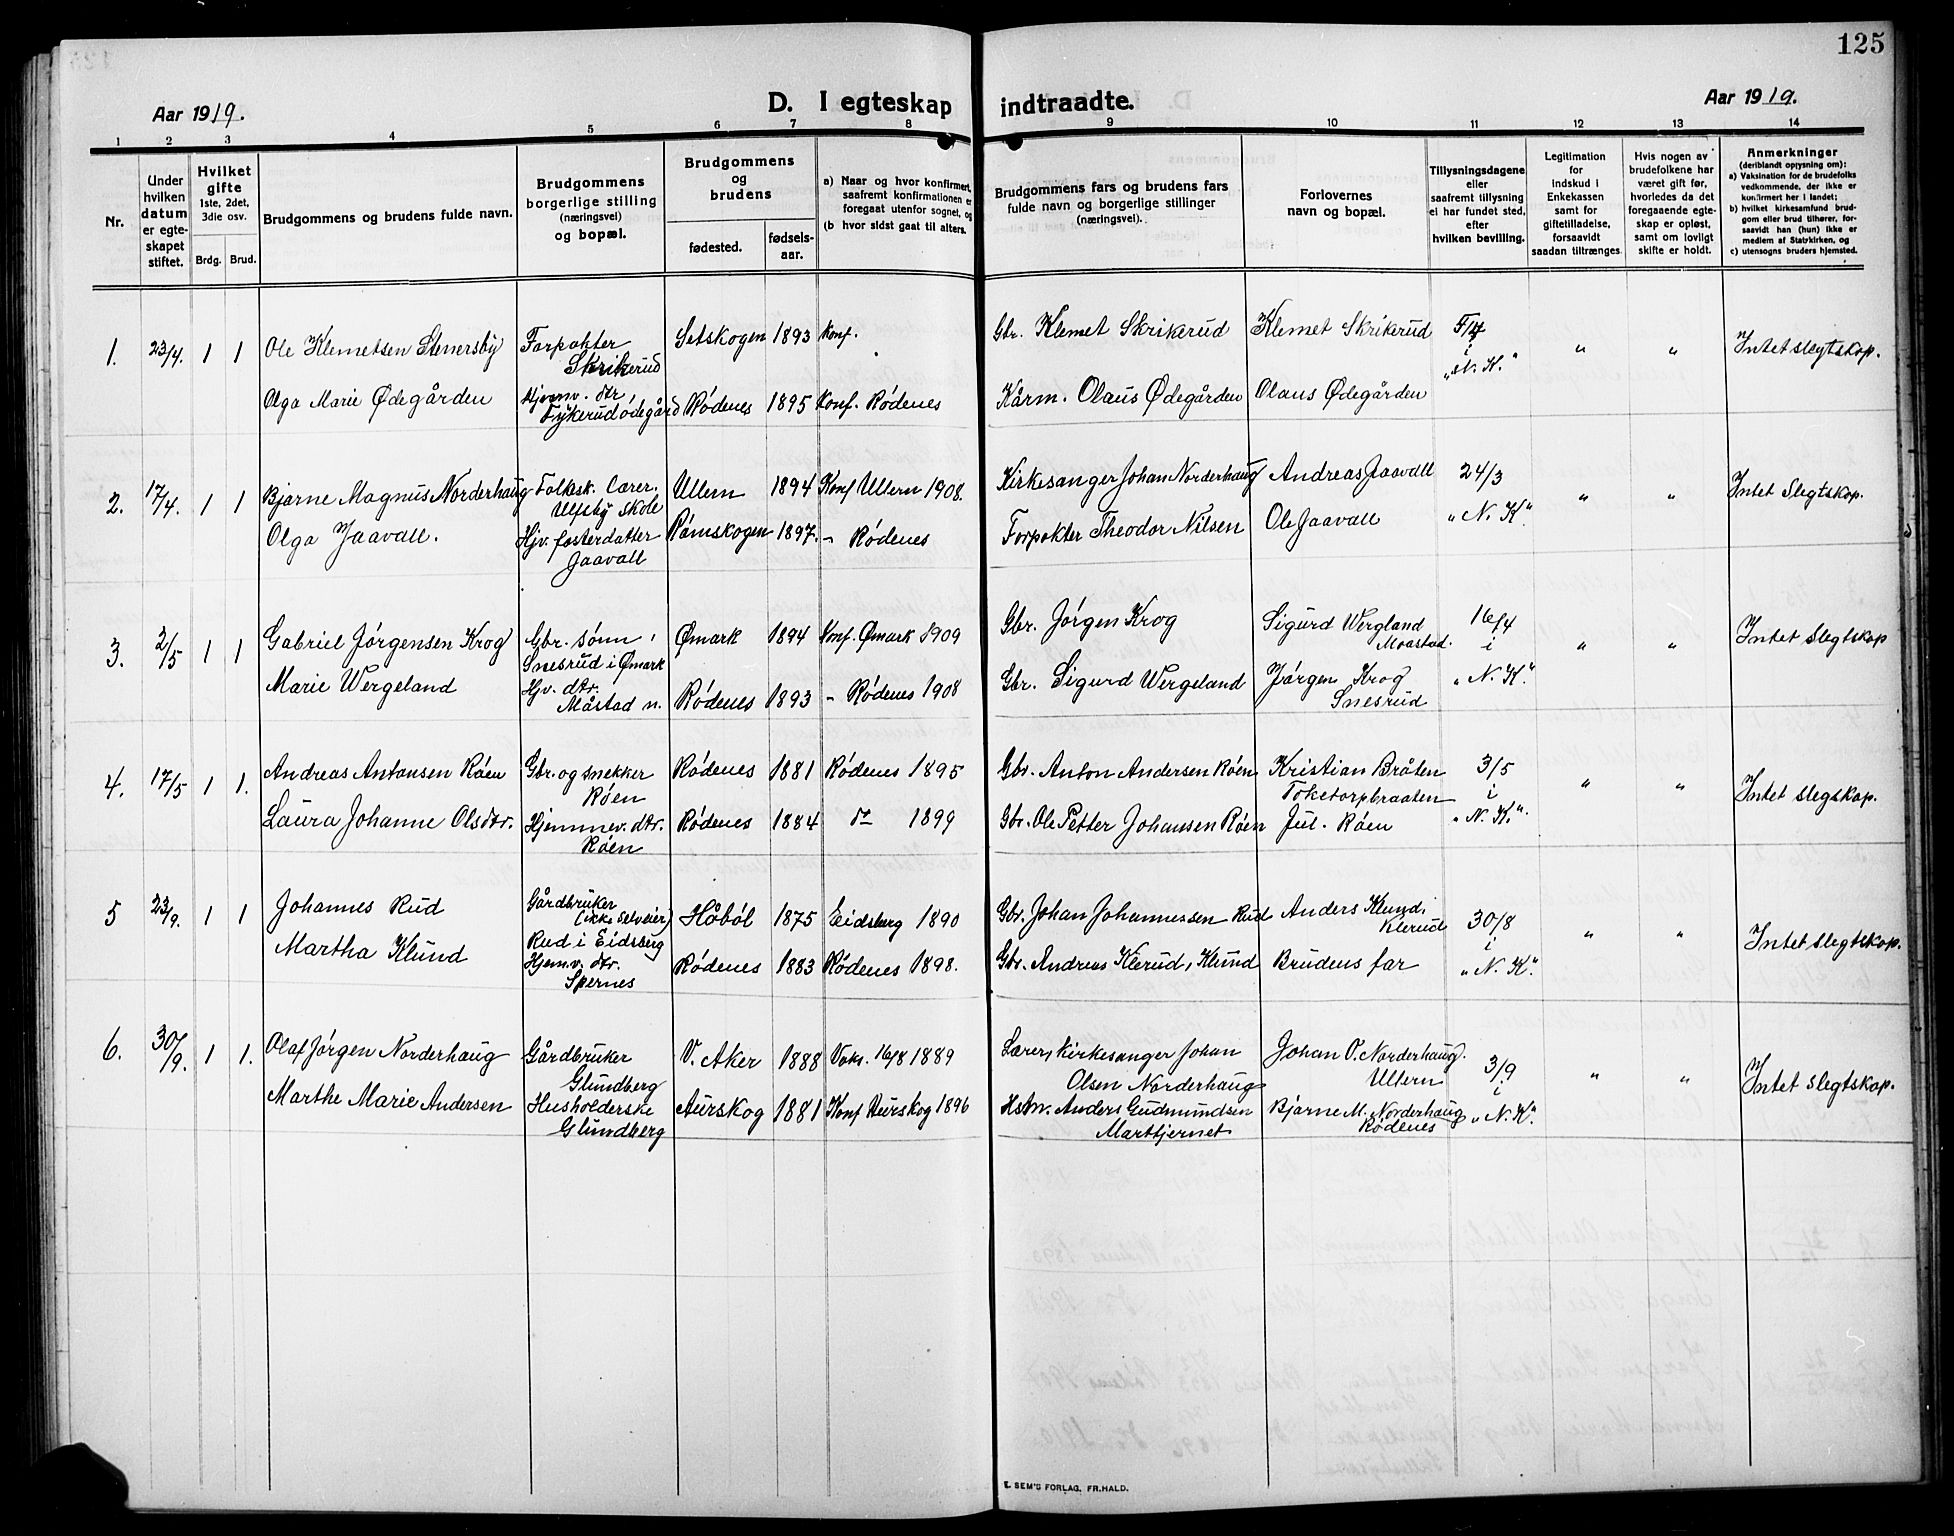 125
Aar 1919.
D. I egteskap indtraadte.
Aar 1919.
1 2 3 4 5 6 7 8 9 10 11 12 13 14
Nr.
Under hvilken datum er egteskapet stiftet.
Hvilket gifte 1ste, 2det, 3die osv.
Brdg. Brud.
Brudgommens og brudens fulde navn.
Brudgommens borgerlige stilling (næringsvel) og bopæl.
Brudgommens og brudens
fødested.
fødsels-aar.
a) Naar og hvor konfirmert, saafremt konfirmationen er foregaat utenfor sognet, og
(b hvor sidst gaat til alters.
Brudgommens fars og brudens fars fulde navn og borgerlige stillinger (næringsvel).
Forlovernes navn og bopæl.
Tillysningsdagene eller saafremt tillysning ei har fundet sted, efter hvilken bevilling.
Legitimation for indskud i Enkekassen samt for giftetilladelse, forsaavidt saadan tiltrænges.
Hvis nogen av brudefolkene har været gift før, hvorledes da det foregaaende egteskap er opløst, samt om lovligt skifte er holdt.
Anmerkninger (deriblandt opysning om):
a) Vaksination for de brudefolks vedkommende, der ikke er konfirmert her i landet;
b) hvilket kirkesamfund brudgom eller brud tilhører, forsaavidt han (hun) ikke er medlem af Statskirken, og
c) utensogns bruders hjemsted.
1. 23/4. 1 1
Ole Klemetsen Stenersby
Forpakter
Skrikerud
Setskogen 1893 Konf.
Gbr. Klemet Skrikerud
Klemet Skrikerud
i
"N. K."
" "
Intet slegtskap.
Olga Marie Ødegården
Hjemv. dtr,
Fykerud ødegård
Rödenes 1895 Konf. Rödenes
Kårm. Olaus Ødegården
Olaus Ødegården
2. 17/4. 1 1
Bjarne Magnus Norderhaug
Folksk. Lærer.
Ulfsby skole
Ullern 1894 Konf Ullern 1908.
Kirkesanger Johan Norderhaug
Andreas Jaavall
24/3
"N. K".
" "
Intet Slegtskap.
Olga Jaavall.
Hjv. fosterdatter
Jaavall
Römskogen 1897. - Rödenes
Forpakter Theodor Nilsen
Ole Jaavall
3. 2/5 1 1
Gabriel Jörgensen Krog
Gbr. sönn,
Snesrud i Ömark
Ømark 1894 Konf. Ømark 1909
Gbr. Jörgen Krog
Sigurd Wergland
Moastad.
16/4
i
"N. K".
" "
Intet Slegtskap
Marie Wergeland
Hjv. dtr.
Måstad n.
Rödenes 1893 - Rödenes 1908
Gbr. Sigurd Wergeland
Jörgen Krog
Snesrud
4. 17/5 1 1.
Andreas Antonsen Röen
Gbr. og snekker
Röen
Rödenes 1881 Rödenes 1895
Gbr. Anton Andersen Röen
Kristian Bråten
Toketorpbraaten
3/5
i
"N. K.".
" "
Intet slegskap.
Laura Johanne Olsdtr.
Hjemmev. dtr.
Röen
Rödenes 1884 do 1899
Gbr. Ole Petter Johansen Röen
Jul. Röen
5 23/9. 1 1
Johannes Rud
Gårdbruker
(ikke selveier)
Rud i Eidsberg
Håböl 1875 Eidsberg 1890
Gbr. Johan Johannessen Rud
Anders Klund,
Klerud
30/8
i
"N. K".
" "
Intet slegtskap.
Martha Klund
Hjem.v. dtr.
Spernes
Rödenes 1883 Rödenes 1898.
Gbr. Andreas Klerud, Klund
Brudens far
6. 30/9. 1 1.
Olaf Jörgen Norderhaug
Gårdbruker
Glundberg
V. Aker 1888 Vaks. 16/8 1889
Lærer, kirkesanger Johan
Olsen Norderhaug
Johan O. Norderhaug.
Ullern
3/9
i
"N. K".
" "
Intet slegtskap.
Marthe Marie Andersen
Husholderske
Glundberg
Aurskog 1881 Konf Aurskog 1896
Hstm. Anders Gudmundsen
Marttjernet
Bjarne M. Norderhaug
Rödenes
E. SEM'S FORLAG, FR.HALD.